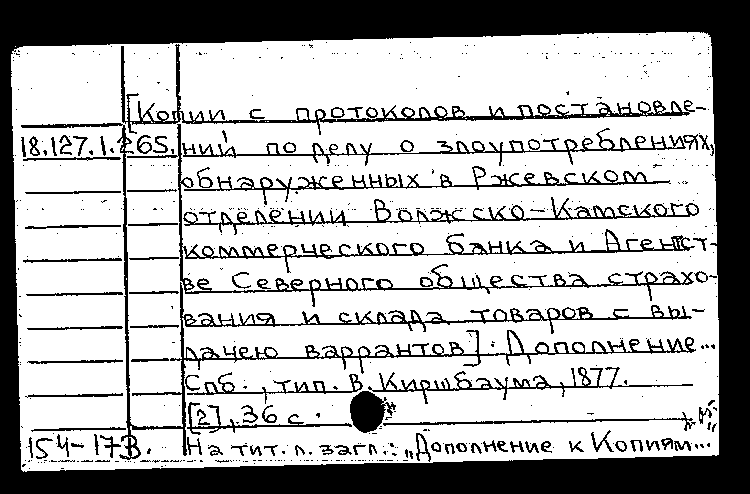 [Копии с протоколов и постановле-
18.127.1.265. ний по делу о злоупотреблениях,
обнаруженных в Ржевском
отделении Волжско-Камского
коммерческого банка и Агентст-
ве Северного общества страхо-
вания и склада товаров с вы-
дачею варрантов]. Дополнение...
Спб., тип. В. Киршбаума, 1877.
[2], 36 с.
154-173. На тит. л. загл.: „Дополнение к Копиям...